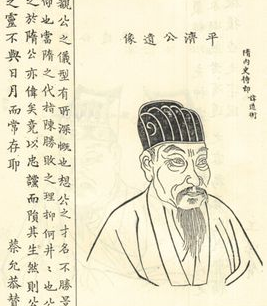 隋內史侍郎 諱道衡
平濟公遺像
觀公之儀型有所深慨也想公之才名不勝景
仰也當隋之代指陳勝敗之理抑何井々也公
之於隋公亦偉矣竟以忠讜而隕其生然則公
之靈不與日月而常存耶
蔡允恭贊